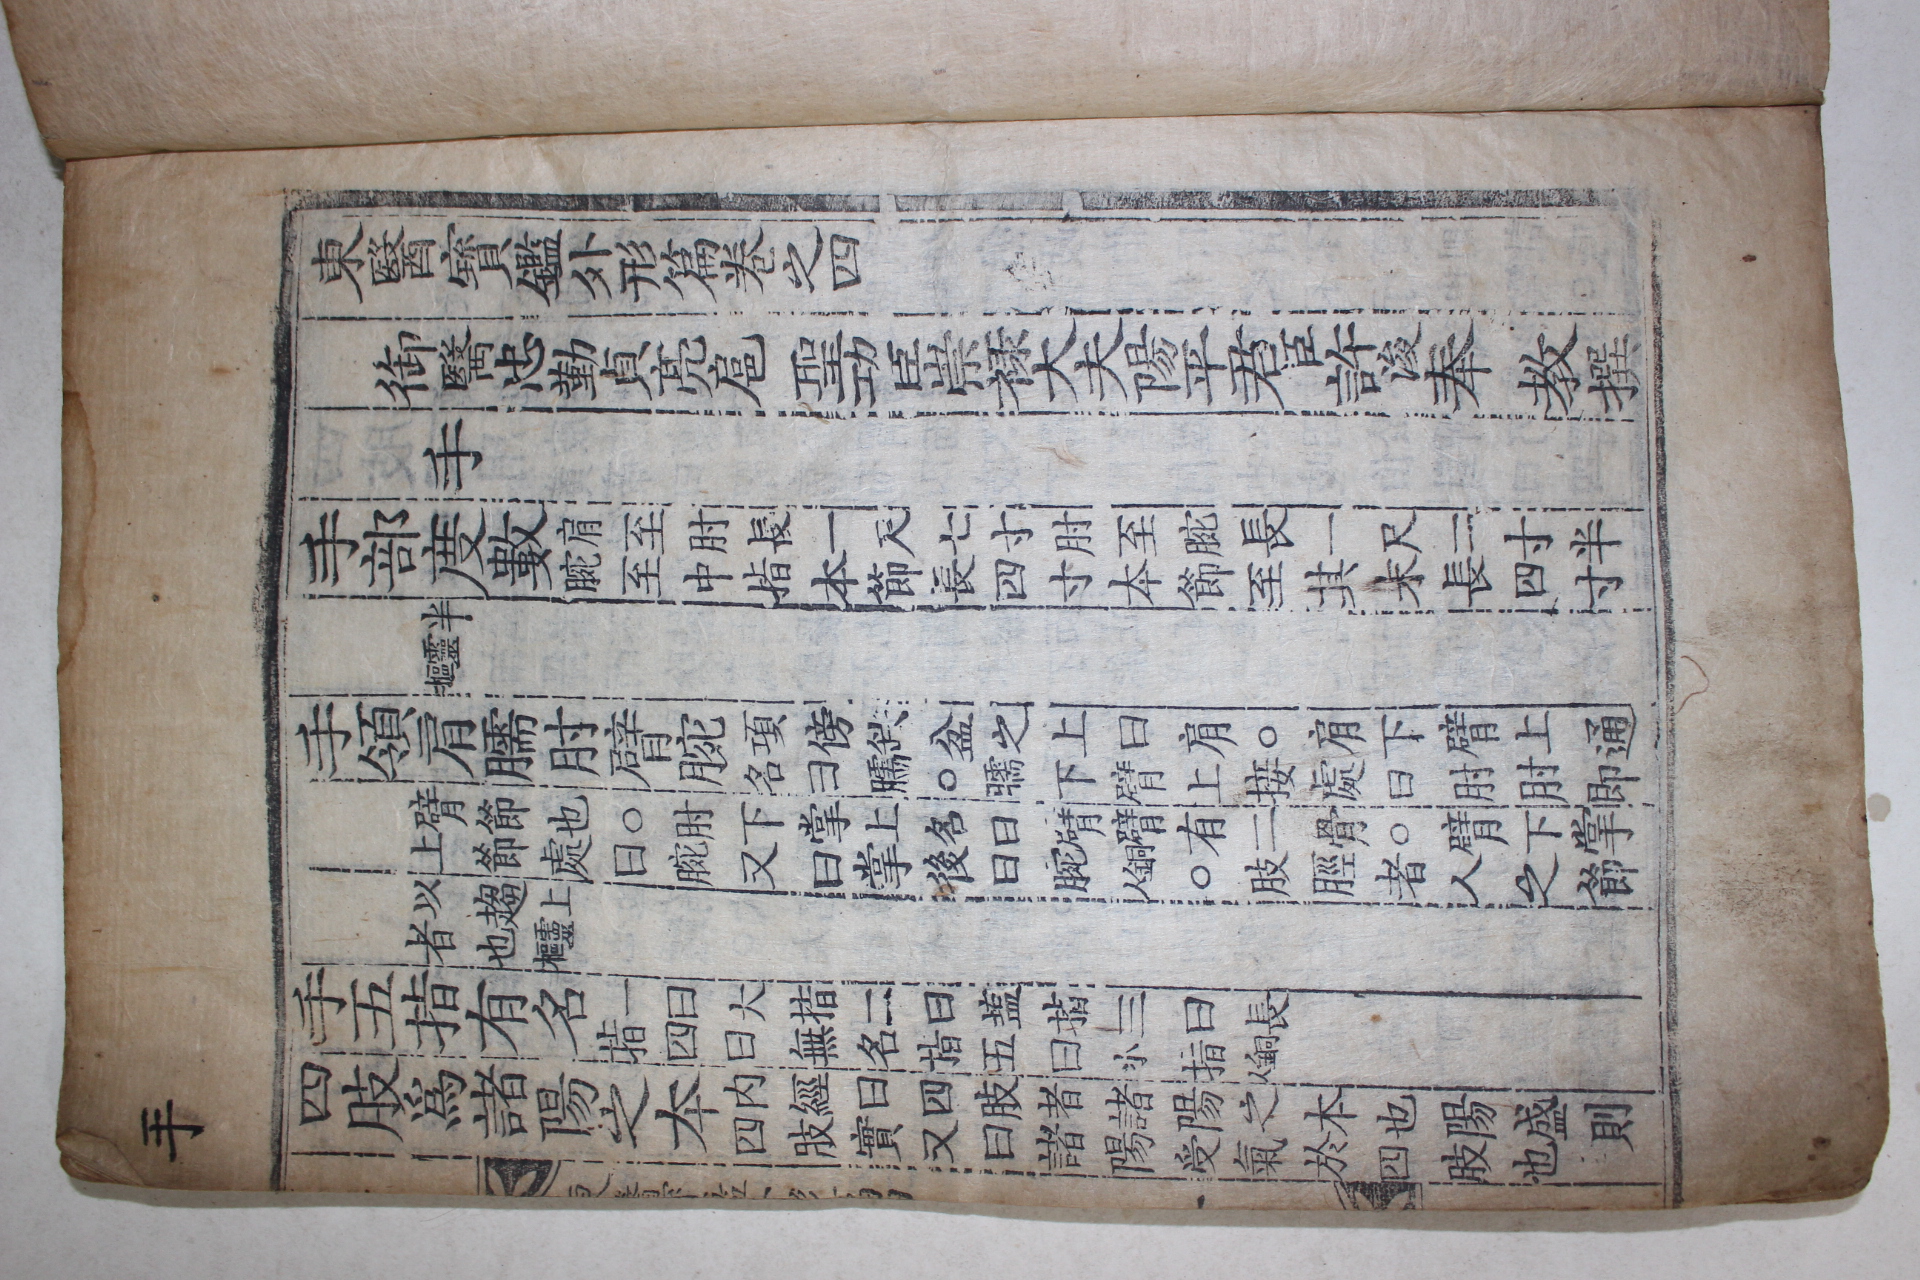 東醫寶鑑外形篇卷之四
御醫忠勤貞亮扈 聖功臣崇祿大夫陽平君臣許浚奉 教撰
手
手部度數 肩至肘長一尺七寸肘至腕長一尺二寸半
腕至中指本節長四寸本節至其末長四寸
半靈樞
手領肩臑肘臂腕 項傍盆之上曰肩○肩下臂上通
名曰臑○臑下臂上接處曰肘肘節
臂節也○肘下掌上名曰臂臂有二骨○臂上掌
上節處曰腕又曰掌後曰腕銅人○肢脛者人之節
以趨上
者也靈樞
手五指有名 一曰大指二曰鹽指三曰長
指四曰無名指五曰小指銅人
四肢爲諸陽之本 內經曰四肢者諸陽之本也陽盛則
四肢實又曰諸陽受氣於四肢也
手